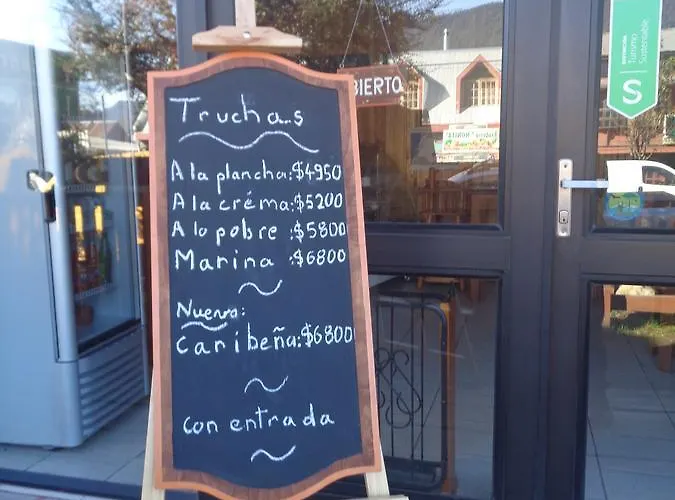 Truchas
A la plancha:$4950
A la créma:$5200
A lo pobre :$5800
Marina :$6800
Nueva:
Caribeña:$6800
con entrada
BIERTO
Turismo
Sustentable
S